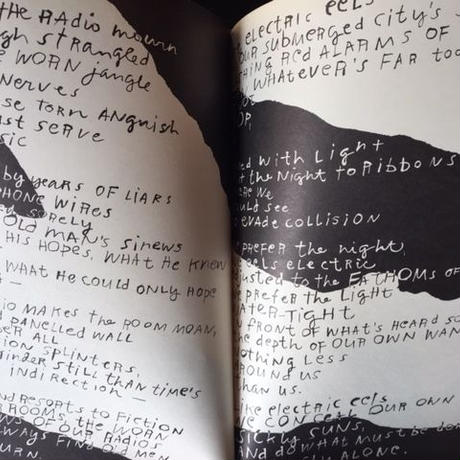 THE RADIO MOURN
STRANGLED
WORN JANGLE
NERVES
TORN ANGUISH
SERVE
BY YEARS OF LIARS
WIRES
SORELY
OLD MAN'S SINEWS
HIS HOPES, WHAT HE KNEW
WHAT HE COULD ONLY HOPE
—
MAKES THE ROOM MOAN,
PANELLED WALL
ALL
SPLINTERS,
STILL THAN TIME'S
INDIRECTION —
RESORTS TO FICTION
ROOMS, THE WORN
OF OUR RADIO
FIND OLD MEN
ELECTRIC EELS
OUR SUBMERGED CITY'S
RED ALARMS OF
WHATEVER'S FAR TOO
WITH LIGHT
THE NIGHT TO RIBBONS
WE
SEE
EVADE COLLISION
PREFER THE NIGHT,
EELS ELECTRIC
TO THE FATHOMS OF
PREFER THE LIGHT
TIGHT
FRONT OF WHAT'S HEARD
DEPTH OF OUR OWN
LESS
US
THAN US.
LIKE ELECTRIC EELS
WE CONCEAL OUR OWN
SICKLY SUNS,
AND DO WHAT MUST BE
ALONE.